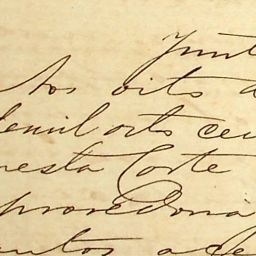 Junt
Aos oito d
demil oito cen
nesta Corte
provedoria
entos a de